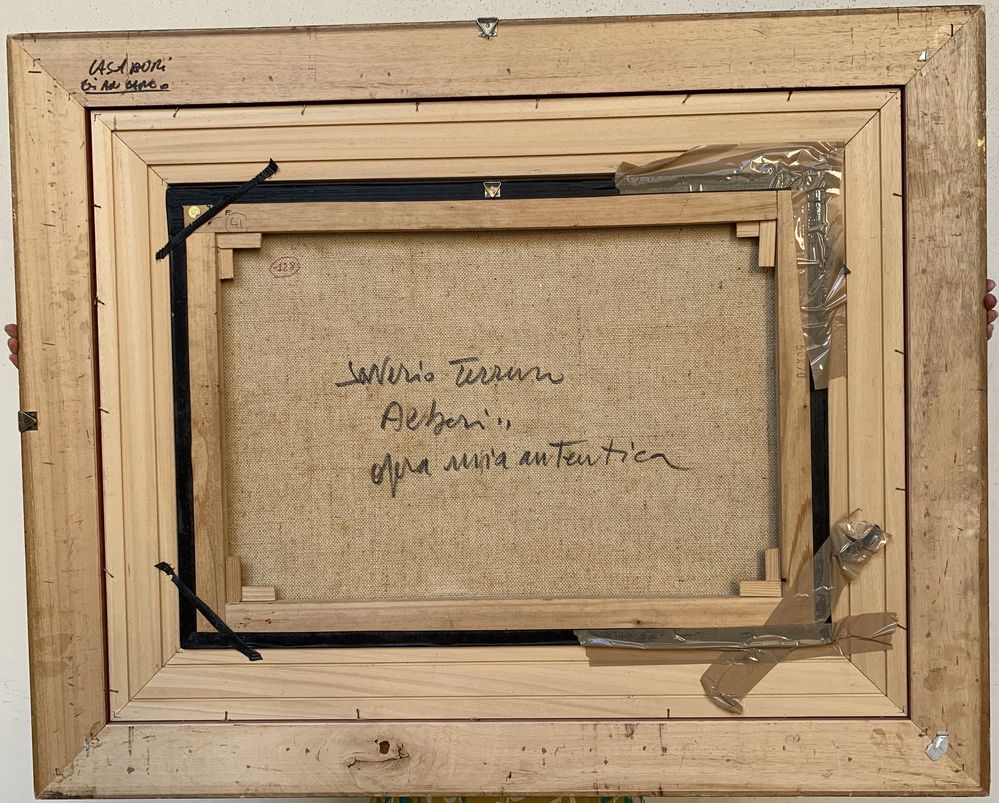 CASADORI
GIANCARLO
41
128
Saverio Terruso
Alberi
opera mia autentica